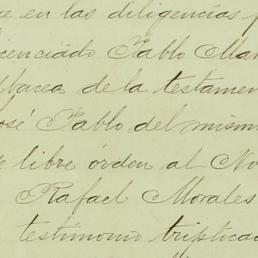 ue en las diligencias p
icenciado Pablo Mar
lbacea de la testamen
osé Pablo del mism
e libre órden al No
Rafael Morales
testimonio triplicad